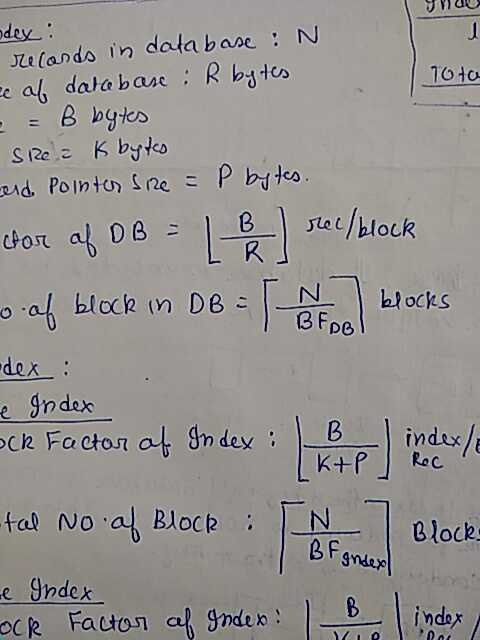 dex :
records in database : N
af database : R bytes
= B bytes
size = K bytes
Pointer Size = P bytes.
ctor af DB = ⌊ B / R ⌋ rec/block
o. af block in DB = ⌈ N / BF DB ⌉ blocks
dex :
e Index
ock Factor af Index : ⌊ B / K+P ⌋ index/ Rec
tal No. af Block : ⌈ N / BF Index ⌉ Blocks
e Index
ock Factor af Index : ⌊ B index /
Tota